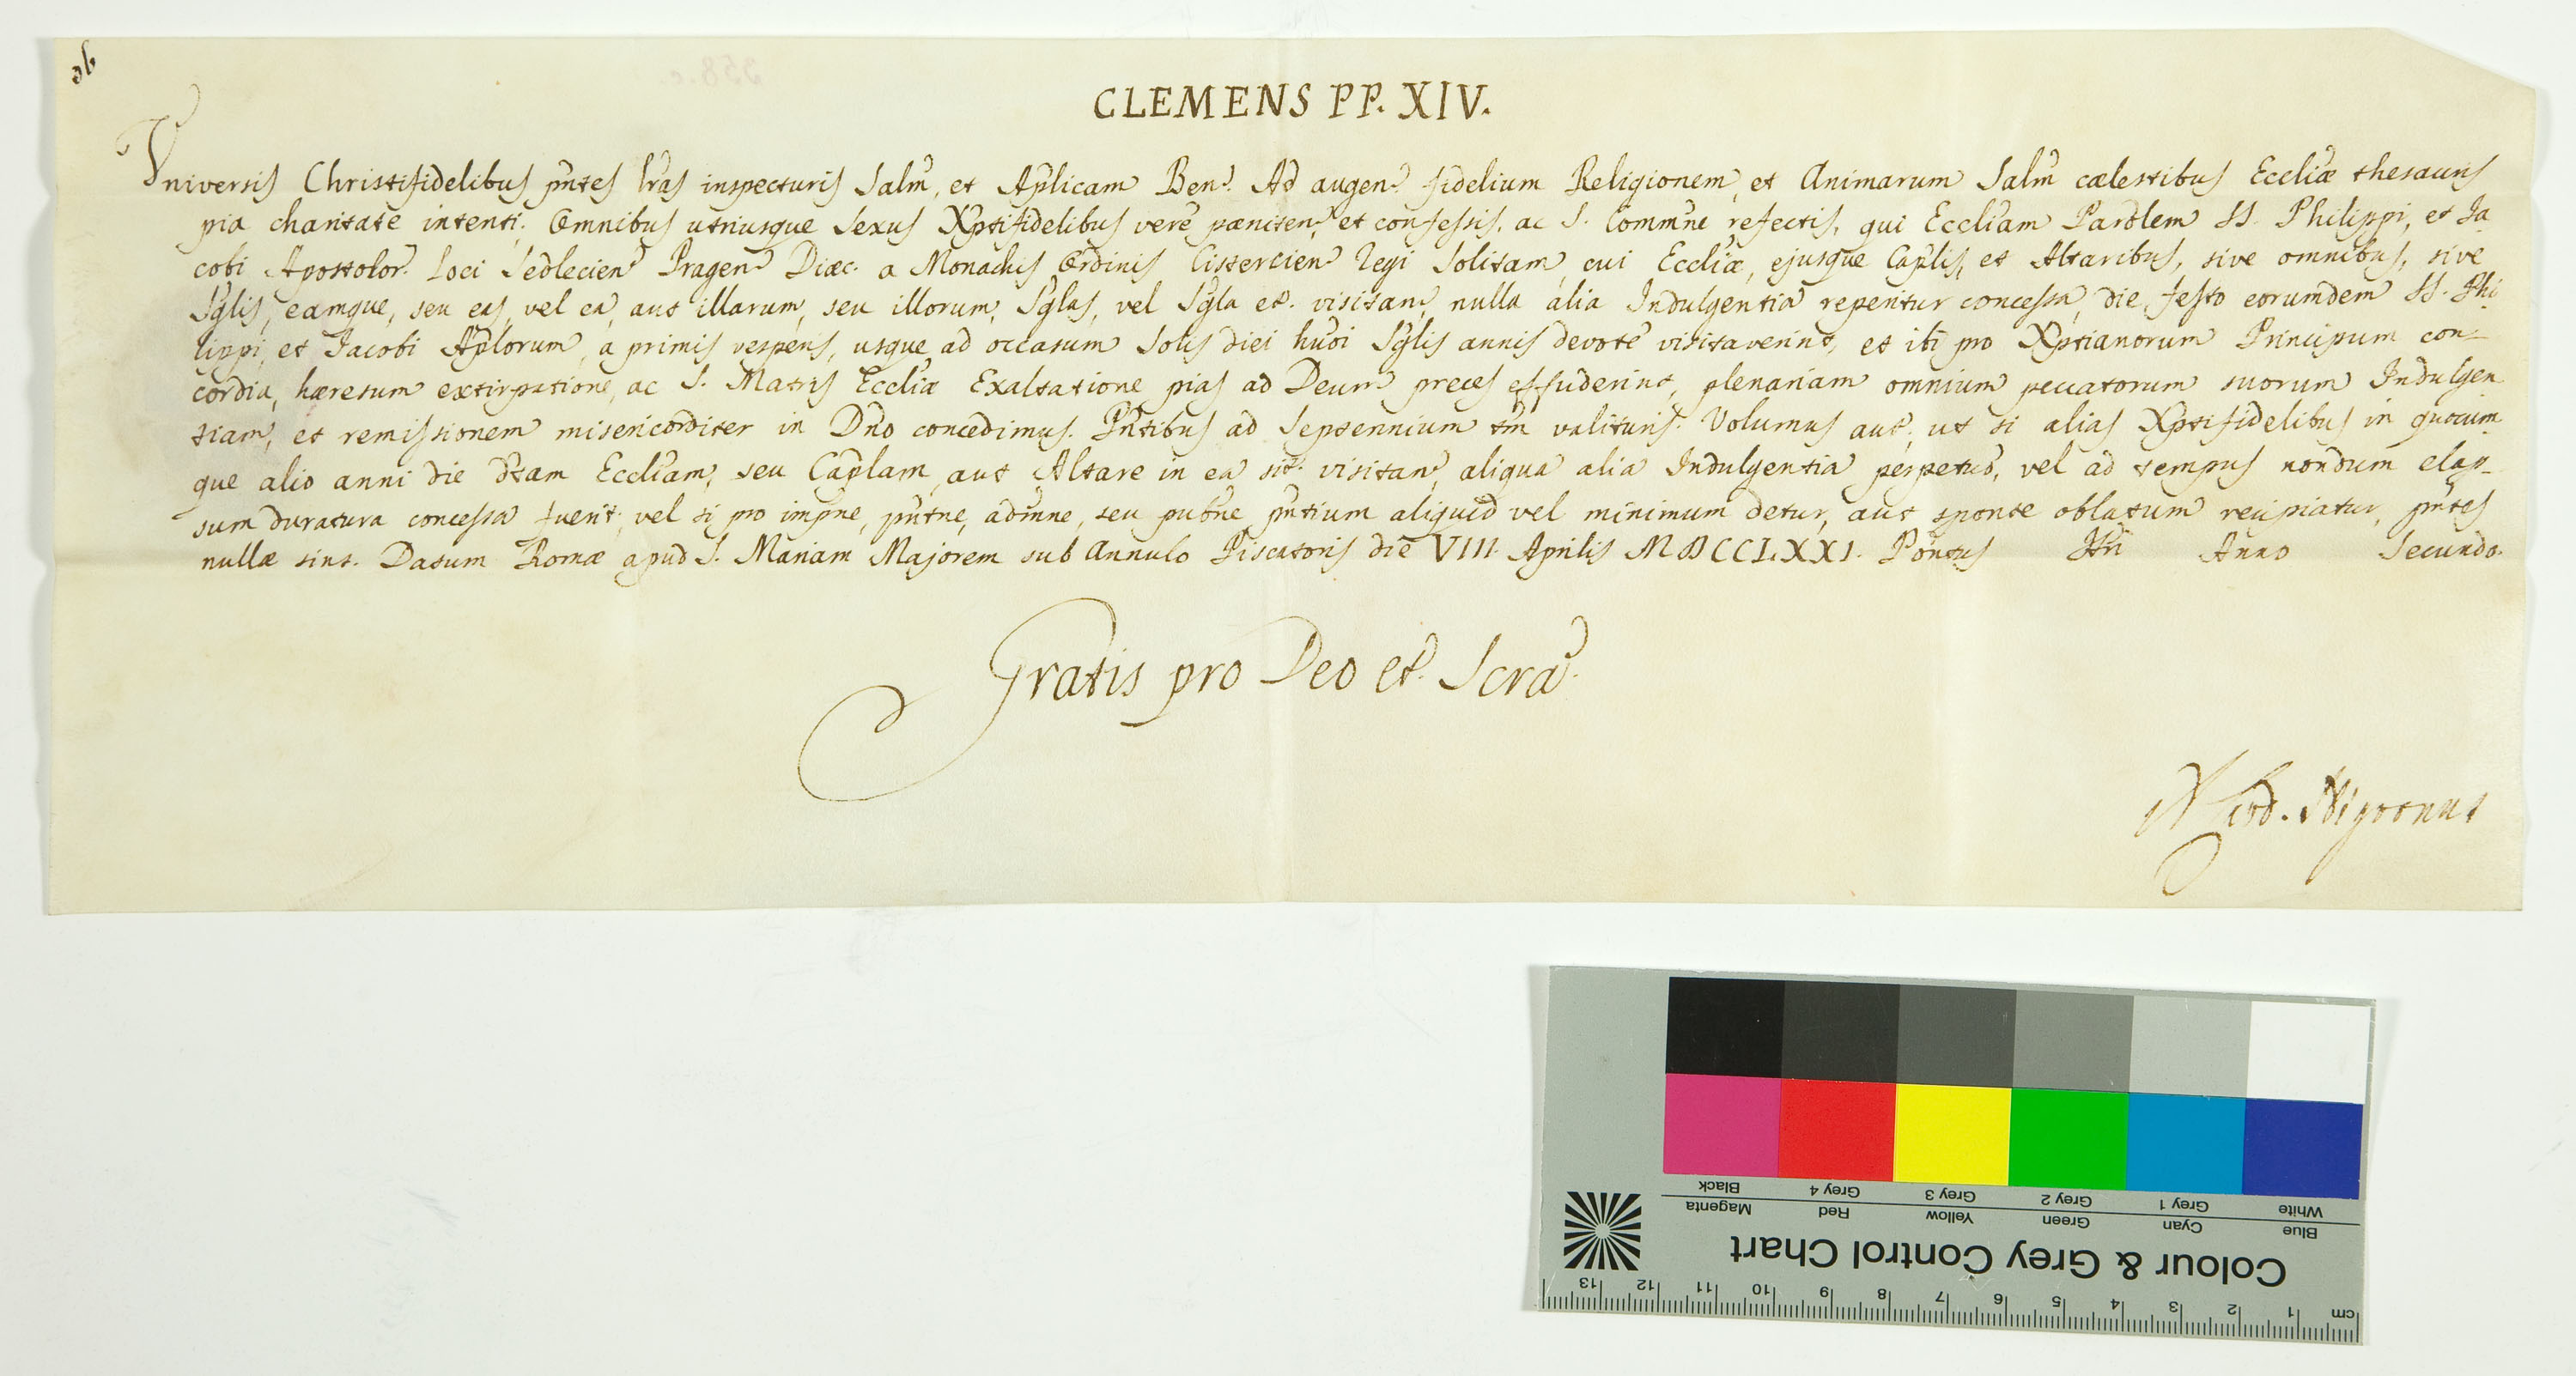 ab
CLEMENS PP. XIV.
Universis Christifidelibus pntes lras inspecturis Salm, et Aplicam Ben. Ad augen. fidelium Religionem, et Animarum Salm cælestibus Eccliæ thesauris
pia charitate intenti. Omnibus utriusque Sexus Xptifidelibus vere pæniten, et confessis, ac S. Commne refectis, qui Eccliam Parolem SS. Philippi, et Ja
cobi Apostolor. Loci Sedlecien Pragen Diæc. a Monachis Ordinis Cistercien Regi Solitam, cui Eccliæ, ejusque Caplis, et Altaribus, sive omnibus, sive
Sglis, eamque, seu eas, vel ea, aut illarum, seu illorum, Sglas, vel Sgla et. visitan, nulla alia Indulgentia reperitur concessa, die festo eorumdem SS. Phi
lippi, et Jacobi Aplorum, a primis vesperis, usque ad occasum Solis diei hujoi Sglis annis devote visitaverint, et ibi pro Xptianorum Principum con-
cordia, hæresum extirpatione, ac S. Matris Eccliæ Exaltatione pias ad Deum preces effuderint, plenariam omnium peccatorum suorum Indulgen
tiam, et remissionem misericorditer in Dno concedimus. Pntibus ad Septennium tm valituris. Volumus aut, ut si alias Xptifidelibus in quocum
que alio anni die dtam Eccliam, seu Caplam, aut Altare in ea sit. visitan, aliqua alia Indulgentia perpetuo, vel ad tempus nondum elap-
sum duratura concessa fuerit, vel si pro impne, pntne, admne, seu pubne pntium aliquid vel minimum detur, aut sponte oblatum recipiatur, pntes
nullæ sint. Datum Romæ apud S. Mariam Majorem sub Annulo Piscatoris die VIII. Aprilis MDCCLXXI. Pontus Nri Anno Secundo.
Gratis pro Deo et Scra
Black Grey 4 Grey 3 Grey 2 Grey 1 White
Magenta Red Yellow Green Cyan Blue
Colour & Grey Control Chart
cm 1 2 3 4 5 6 7 8 9 10 11 12 13